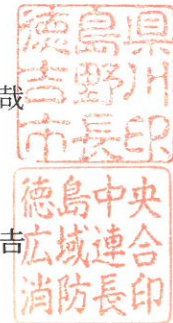 哉
徳島県
吉野川
市長印
吉
徳島中央
広域連合
消防長印